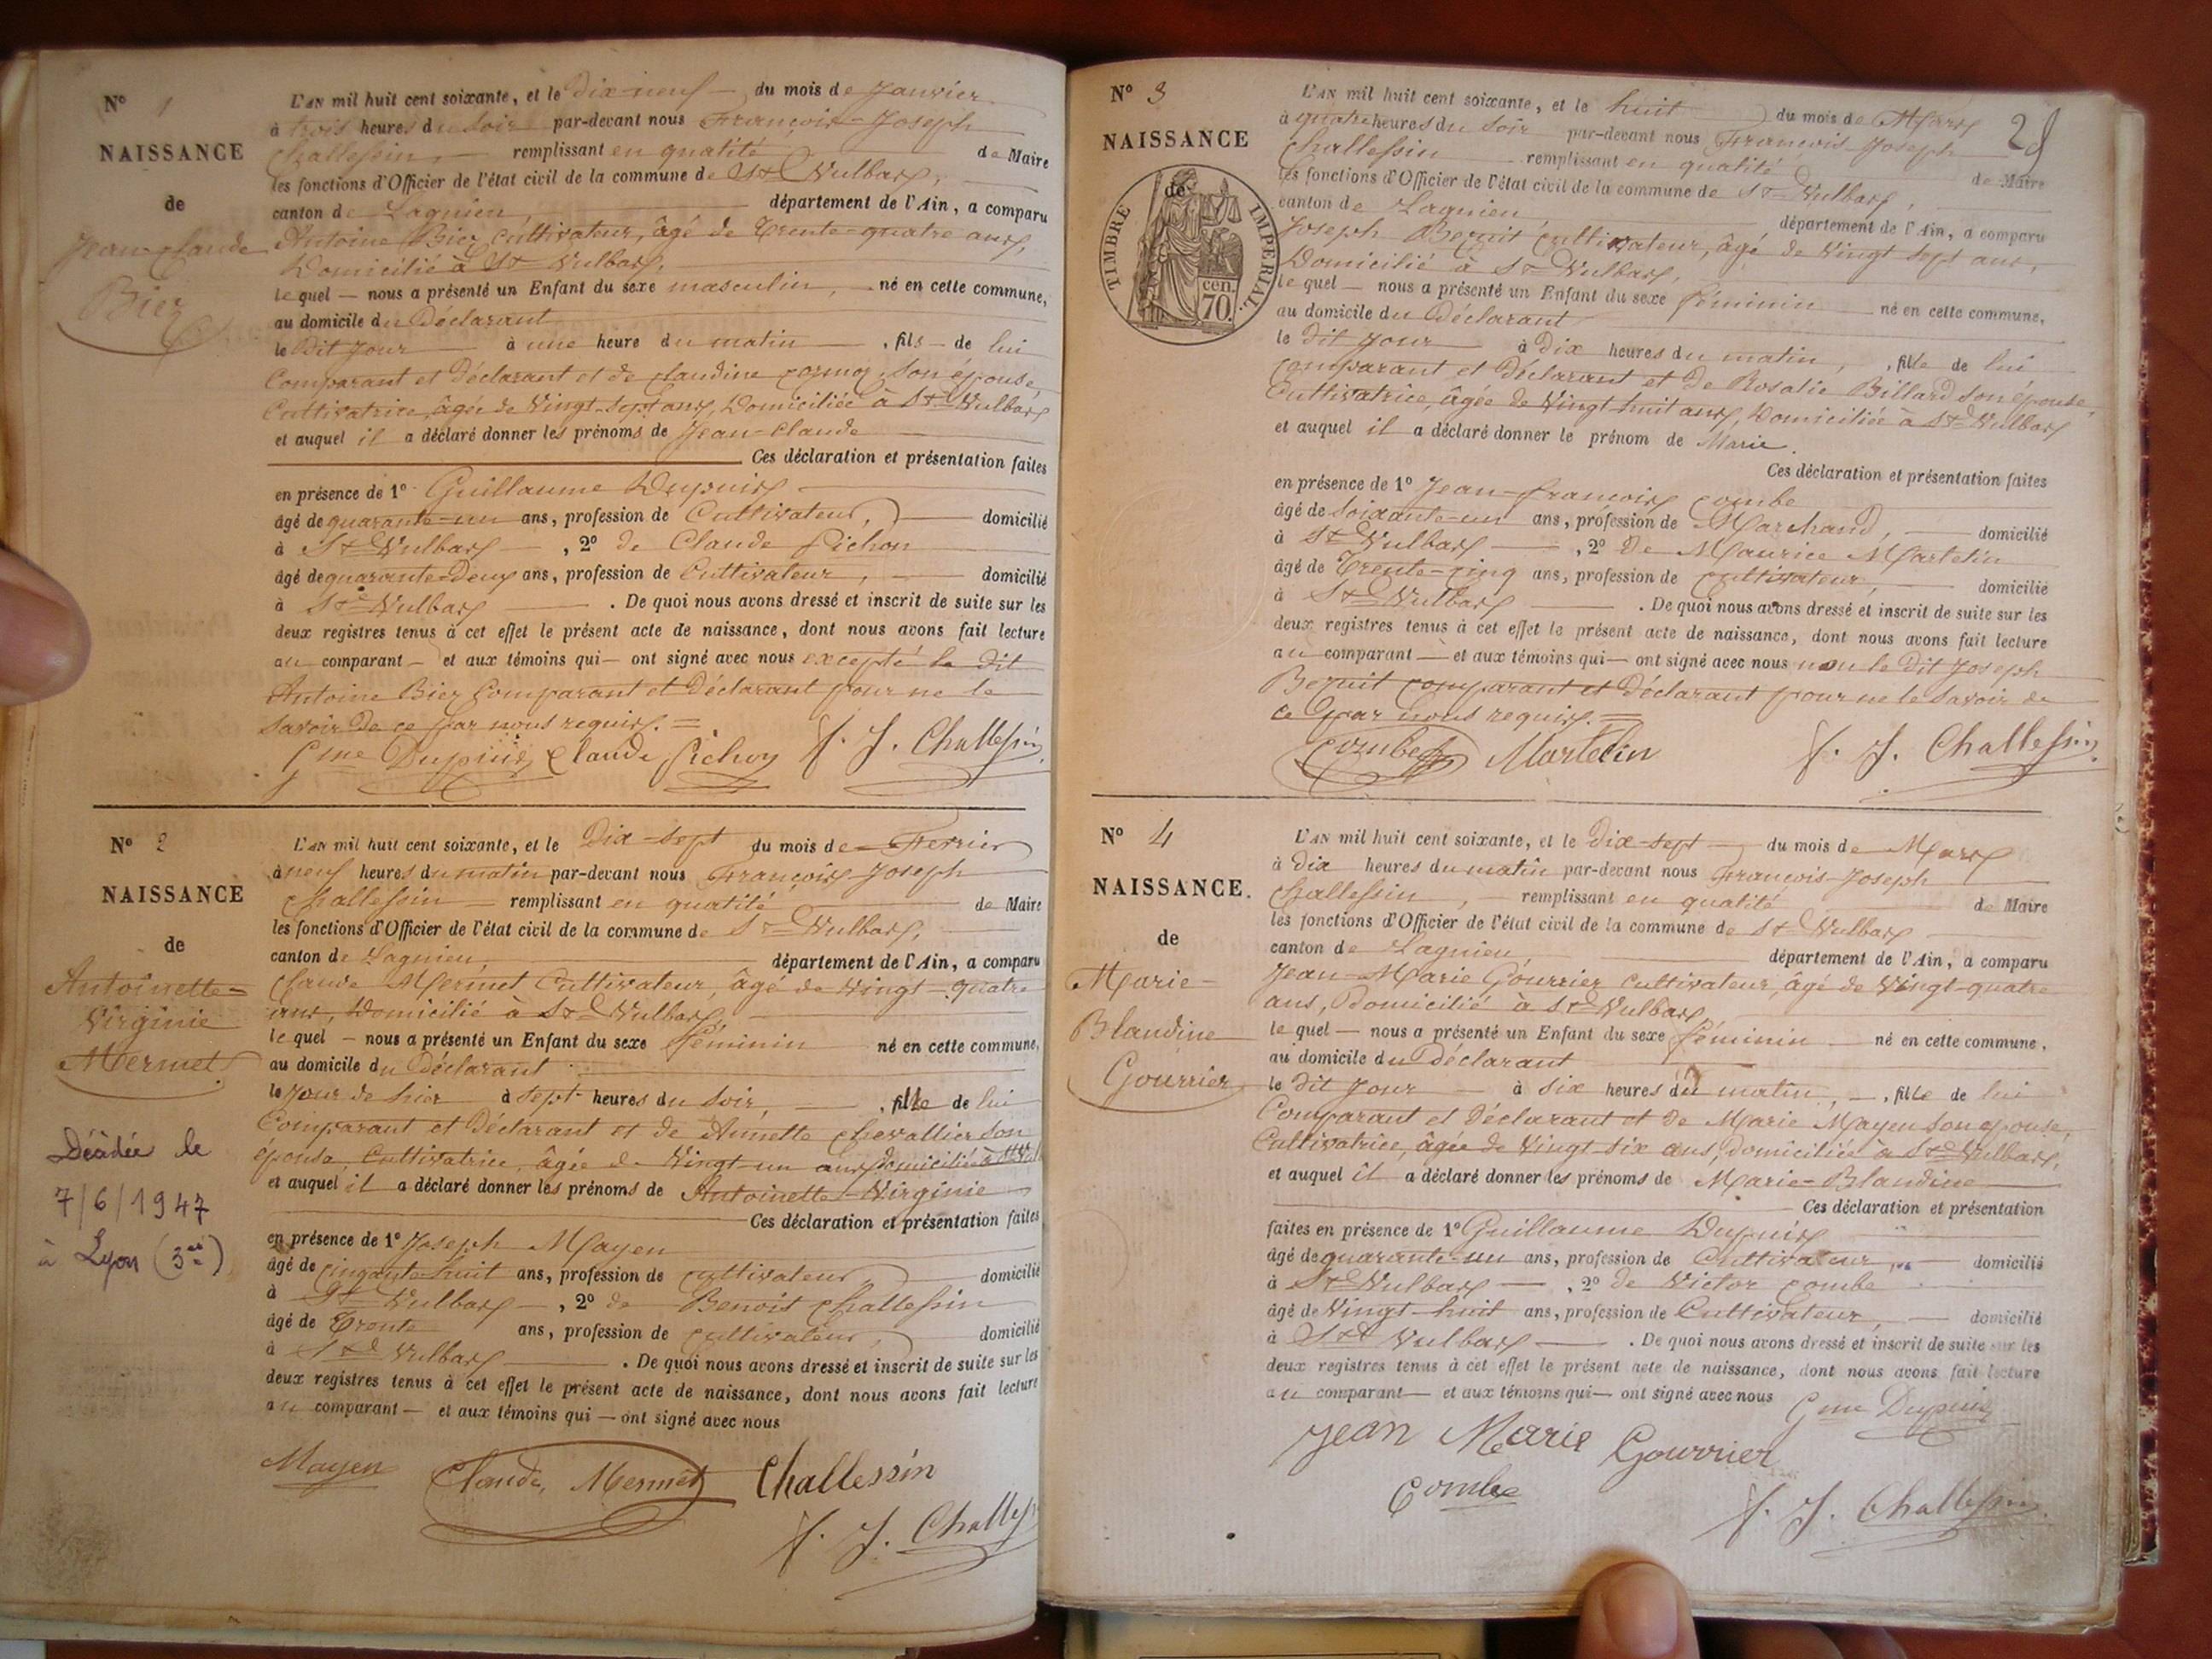 N° 1
NAISSANCE
de
Jean-Claude
Biez
L'AN mil huit cent soixante, et le Dix-neuf du mois de Janvier
à trois heures du soir par-devant nous François-Joseph
Challessin, remplissant en qualité de Maire
les fonctions d'Officier de l'état civil de la commune de St Vulbas,
canton de Lagnieu, département de l'Ain, a comparu
Antoine Biez Cultivateur, âgé de Trente-quatre ans,
Domicilié à St Vulbas,
lequel — nous a présenté un Enfant du sexe masculin, né en cette commune,
au domicile du Déclarant
le Dit Jour à une heure du matin, fils de lui
Comparant et Déclarant et de Claudine Cozmoz, son épouse,
Cultivatrice, âgée de Vingt-sept ans, Domiciliée à St Vulbas
et auquel il a déclaré donner les prénoms de Jean-Claude
Ces déclaration et présentation faites
en présence de 1° Guillaume Dupuis
âgé de quarante-un ans, profession de Cultivateur, domicilié
à St Vulbas, 2° de Claude Pichon
âgé de quarante-Deux ans, profession de Cultivateur, domicilié
à St Vulbas. De quoi nous avons dressé et inscrit de suite sur les
deux registres tenus à cet effet le présent acte de naissance, dont nous avons fait lecture
au comparant — et aux témoins qui — ont signé avec nous excepté le dit
Antoine Biez Comparant et Déclarant pour ne le
savoir de ce par nous requis. =
Gme Dupuis Claude Pichon f. J. Challessin
N° 2
NAISSANCE
de
Antoinette-
Virginie
Mermet
Décédée le
7/6/1947
à Lyon (3e)
L'AN mil huit cent soixante, et le Dix-sept du mois de Fevrier
à neuf heures du matin par-devant nous François Joseph
Challessin remplissant en qualité de Maire
les fonctions d'Officier de l'état civil de la commune de St Vulbas,
canton de Lagnieu, département de l'Ain, a comparu
Claude Mermet Cultivateur, âgé de Vingt-quatre
ans, Domicilié à St Vulbas,
lequel — nous a présenté un Enfant du sexe féminin né en cette commune,
au domicile du Déclarant
le Jour de hier à sept heures du soir, fille de lui
Comparant et Déclarant et de Annette Chevallier son
épouse, Cultivatrice, âgée de Vingt-un ans, domiciliée à
et auquel il a déclaré donner les prénoms de Antoinette-Virginie
Ces déclaration et présentation faites
en présence de 1° Joseph Mayen
âgé de cinqante-huit ans, profession de Cultivateur, domicilié
à St Vulbas —, 2° de Benoit Challessin
âgé de Trente ans, profession de Cultivateur, domicilié
à St Vulbas. De quoi nous avons dressé et inscrit de suite sur les
deux registres tenus à cet effet le présent acte de naissance, dont nous avons fait lecture
au comparant — et aux témoins qui — ont signé avec nous
Mayen Claude, Mermet Challessin
f. J. Challess
N° 3
NAISSANCE
de
TIMBRE IMPÉRIAL.
cen.
70.
28
L'AN mil huit cent soixante, et le huit du mois de Mars
à quatre heures du soir par-devant nous François-Joseph
Challessin remplissant en qualité de Maire
les fonctions d'Officier de l'état civil de la commune de St Vulbas,
canton de Lagnieu, département de l'Ain, a comparu
Joseph Beruit cultivateur, âgé de Vingt sept ans,
Domicilié à St Vulbas,
lequel — nous a présenté un Enfant du sexe féminin né en cette commune,
au domicile du Déclarant
le Dit Jour à Dix heures du matin, fille de lui
Comparant et Déclarant et de Rosalie Billard son épouse,
Cultivatrice, âgée de Vingt huit ans, Domiciliée à St Vulbas
et auquel il a déclaré donner le prénom de Marie.
Ces déclaration et présentation faites
en présence de 1° Jean-François Combe
âgé de soixante-un ans, profession de Marchand, domicilié
à St Vulbas —, 2° de Maurice Martelin
âgé de Trente-cinq ans, profession de Cultivateur, domicilié
à St Vulbas. De quoi nous avons dressé et inscrit de suite sur les
deux registres tenus à cet effet le présent acte de naissance, dont nous avons fait lecture
au comparant — et aux témoins qui — ont signé avec nous non le dit Joseph
Beruit Comparant et Déclarant pour ne le savoir de
ce par nous requis. =
Combe Martelin f. J. Challessin
N° 4
NAISSANCE.
de
Marie-
Blandine
Gourrier
L'AN mil huit cent soixante, et le Dix-sept du mois de Mars
à Dix heures du matin par-devant nous François-Joseph
Challessin, remplissant en qualité de Maire
les fonctions d'Officier de l'état civil de la commune de St Vulbas
canton de Lagnieu, département de l'Ain, a comparu
Jean-Marie Gourrier Cultivateur, âgé de Vingt-quatre
ans, Domicilié à St Vulbas
lequel — nous a présenté un Enfant du sexe féminin né en cette commune,
au domicile du Déclarant
le Dit Jour à six heures du matin, fille de lui
Comparant et Déclarant et de Marie Mayen son epouse,
Cultivatrice, âgée de Vingt six ans, domiciliée à St Vulbas,
et auquel il a déclaré donner les prénoms de Marie-Blandine
Ces déclaration et présentation
faites en présence de 1° Guillaume Dupuis
âgé de quarante-un ans, profession de Cultivateur, domicilié
à St Vulbas —, 2° de Victor Combe
âgé de Vingt-huit ans, profession de Cultivateur, domicilié
à St Vulbas —. De quoi nous avons dressé et inscrit de suite sur les
deux registres tenus à cet effet le présent acte de naissance, dont nous avons fait lecture
au comparant — et aux témoins qui — ont signé avec nous Gme Dupuis
Jean Marie Gourrier
Combe
f. J. Challessin